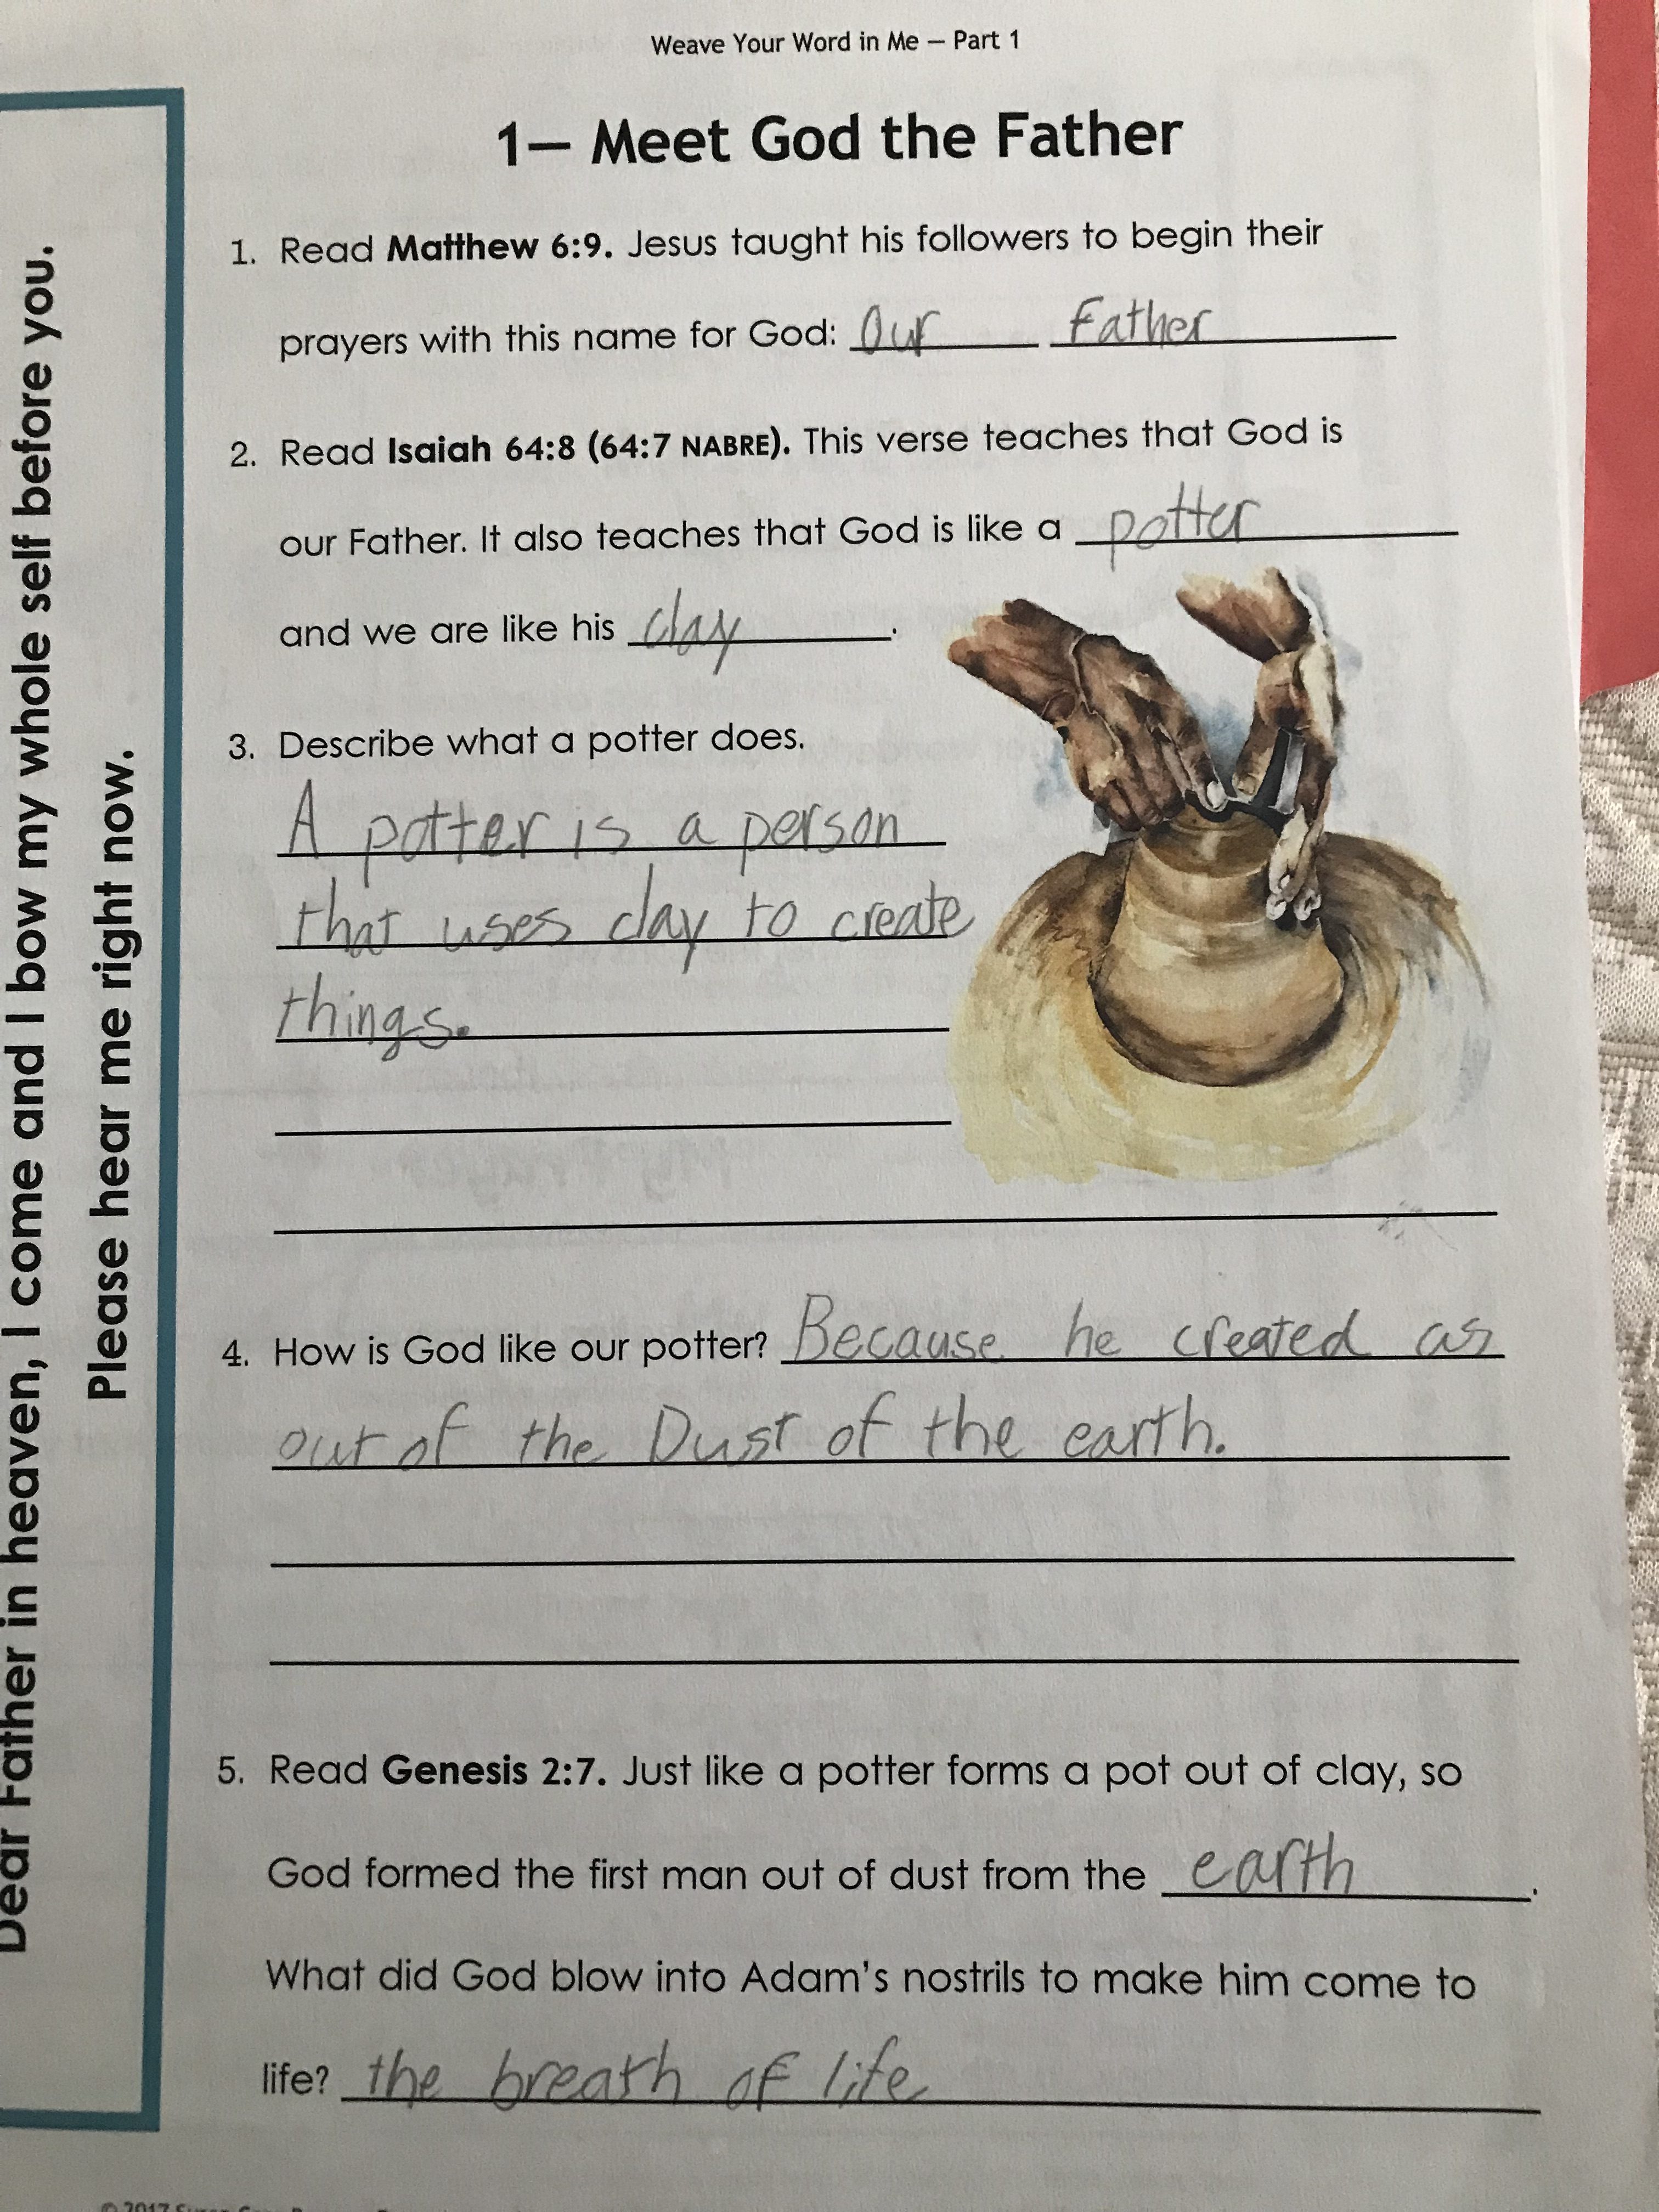 Weave Your Word in Me – Part 1
1— Meet God the Father
1. Read Matthew 6:9. Jesus taught his followers to begin their
prayers with this name for God: Our Father
2. Read Isaiah 64:8 (64:7 NABRE). This verse teaches that God is
our Father. It also teaches that God is like a potter
and we are like his clay.
3. Describe what a potter does.
A potter is a person
that uses clay to create
things.
4. How is God like our potter? Because he created as
out of the Dust of the earth.
5. Read Genesis 2:7. Just like a potter forms a pot out of clay, so
God formed the first man out of dust from the earth.
What did God blow into Adam's nostrils to make him come to
life? the breath of life
Dear Father in heaven, I come and I bow my whole self before you.
Please hear me right now.
© 2017